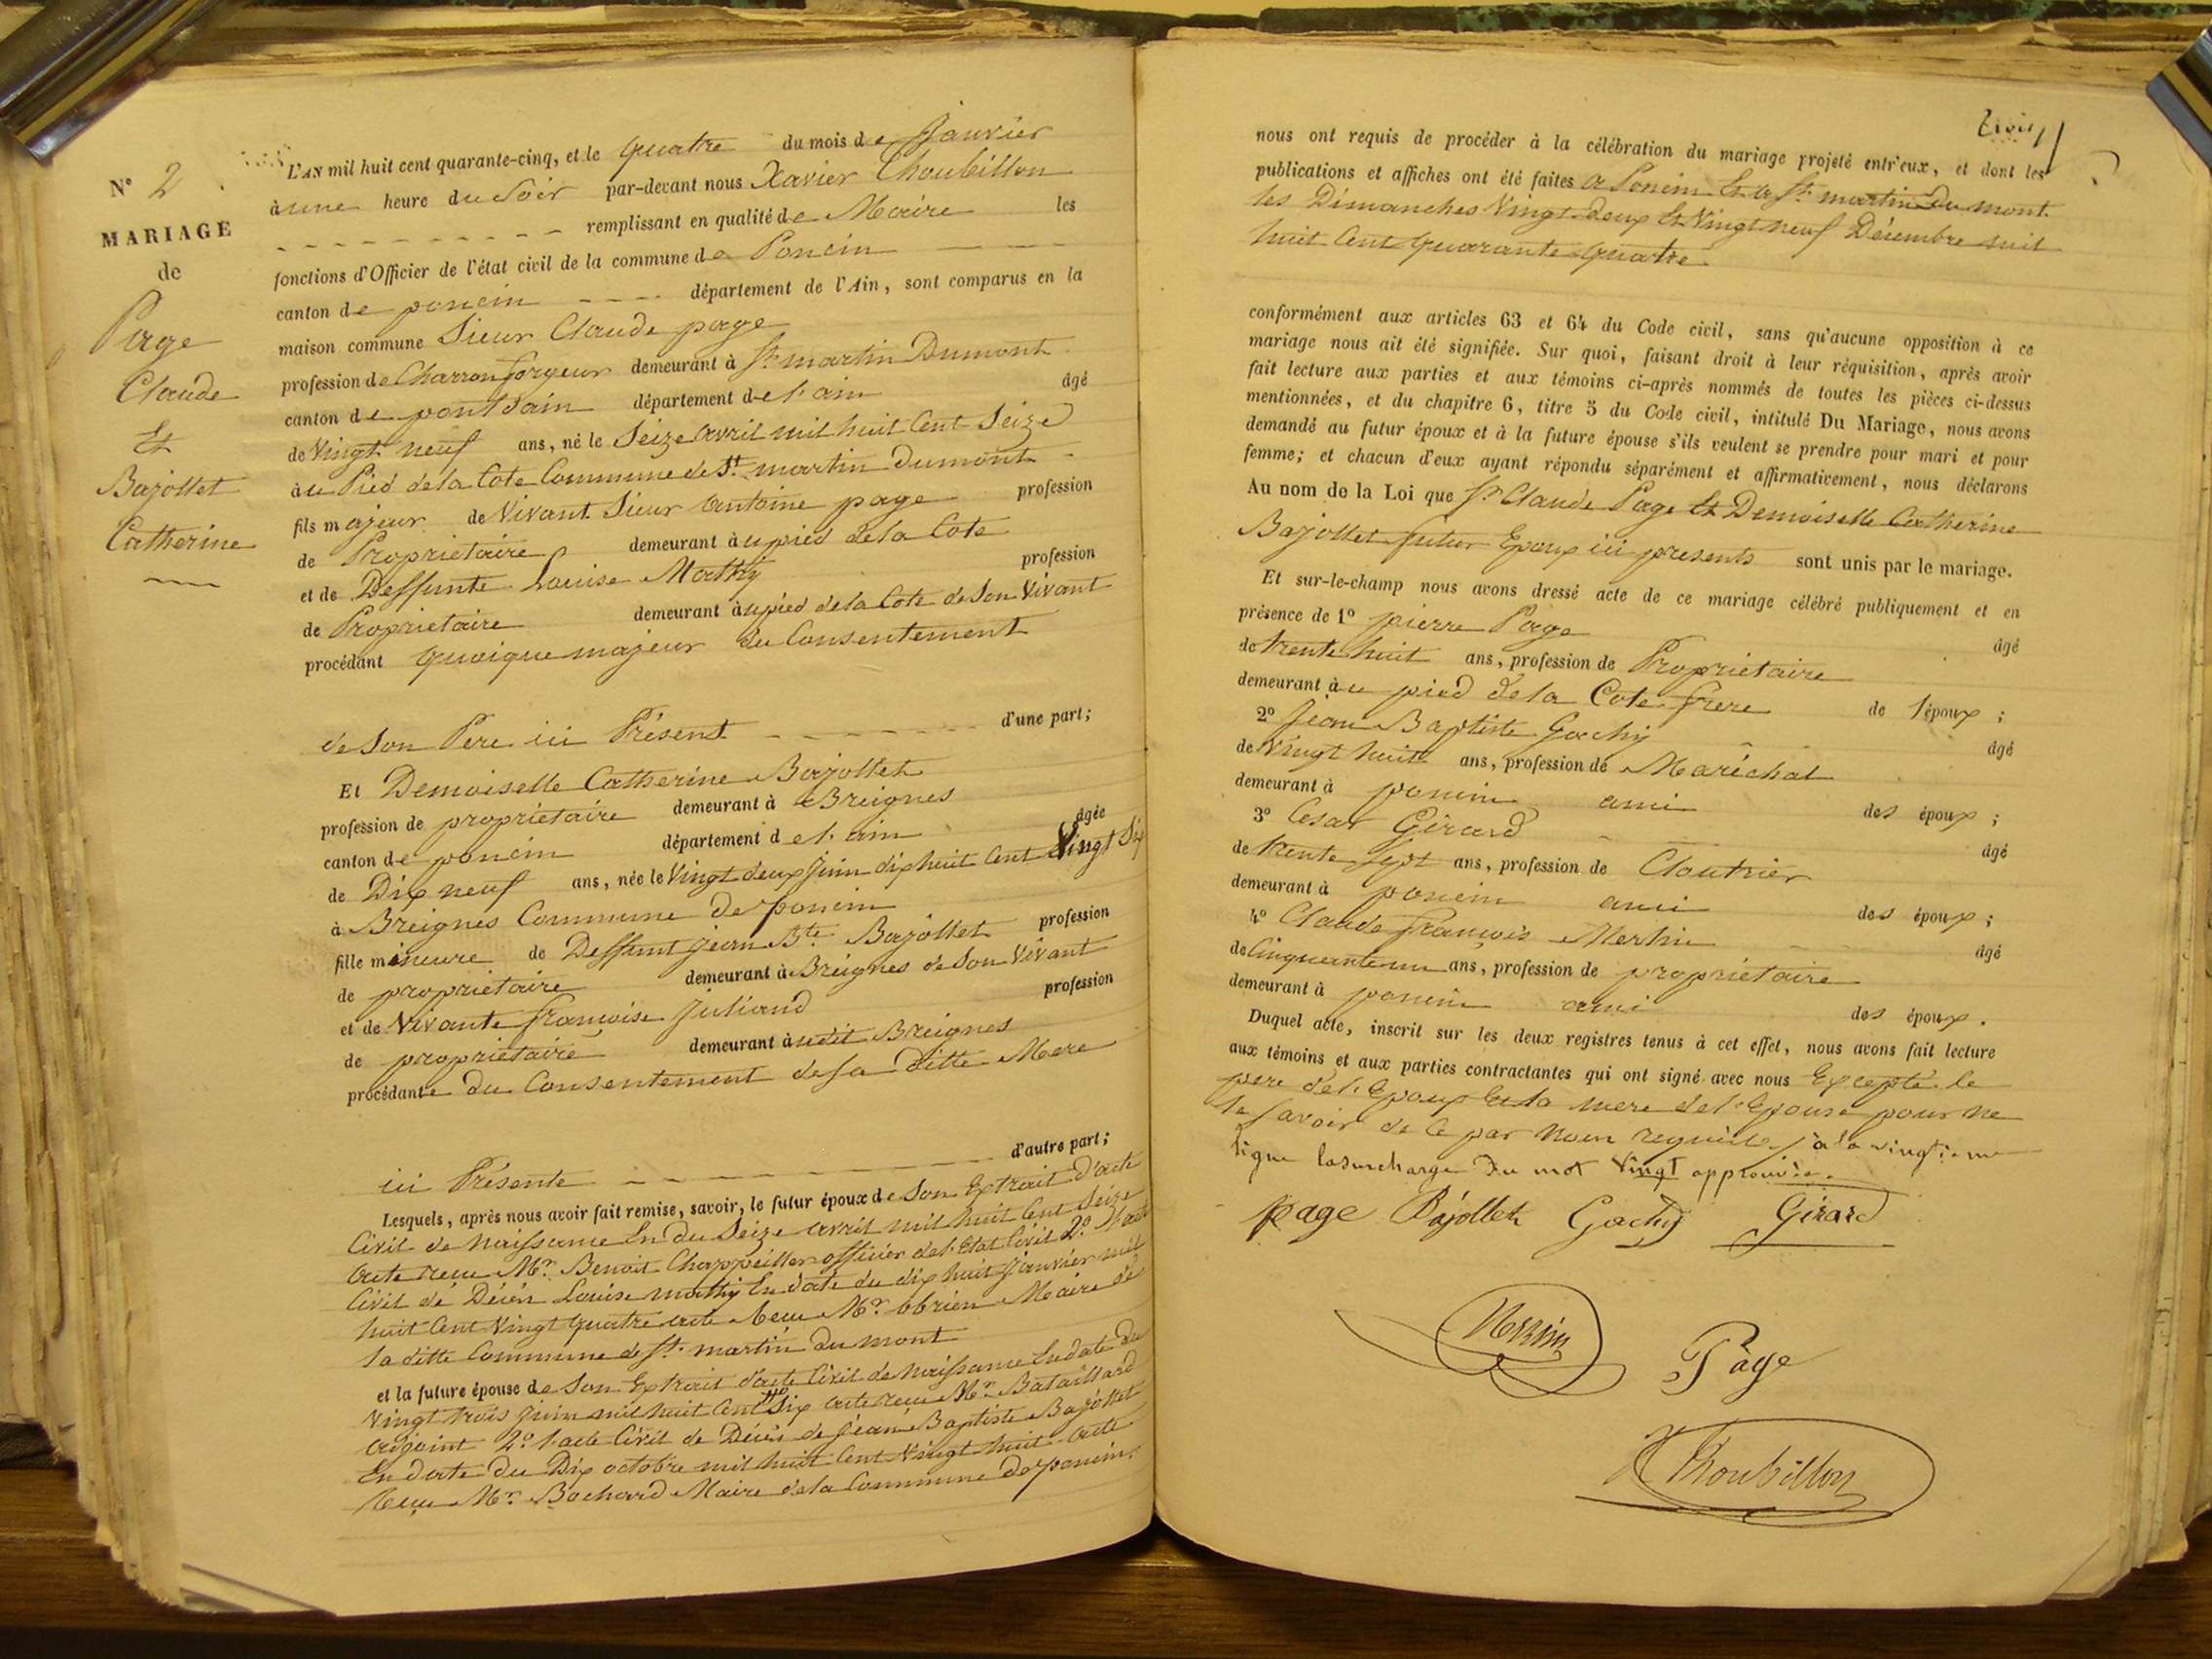 N° 2
MARIAGE
de
Page
Claude
Et
Bajollet
Catherine
L'AN mil huit cent quarante-cinq, et le quatre du mois de Janvier
à une heure du Soir par-devant nous Xavier Choubillon
remplissant en qualité de Maire les
fonctions d'Officier de l'état civil de la commune de Poncin
canton de poncin département de l'Ain, sont comparus en la
maison commune Sieur Claude page
profession de Charron forgeur demeurant à St martin Dumont
canton de pontdain département de l'ain âgé
de Vingt neuf ans, né le Seize avril mil huit Cent Seize
au Pied de la Cote Commune de St martin Dumont
fils majeur de Vivant Sieur antoine page profession
de Propriétaire demeurant au pied de la Cote
et de Deffunte Louise Mathy profession
de Propriétaire demeurant au pied de la Cote de Son Vivant
procédant quoique majeur du Consentement
de Son Pere ici Présent d'une part;
Et Demoiselle Catherine Bajollet
profession de propriétaire demeurant à Breignes
canton de poncin département de l'ain âgée
de Dix neuf ans, née le Vingt deux Juin dix huit Cent Vingt Six
à Breignes Commune de poncin
fille mineure de Deffunt jean Bte Bajollet profession
de propriétaire demeurant à Breignes de Son Vivant
et de Vivante françoise Juliand profession
de propriétaire demeurant audit Breignes
procédante du Consentement de Sa ditte Mere
ici Présente d'autre part;
Lesquels, après nous avoir fait remise, savoir, le futur époux de Son Extrait d'acte
Civil de Naissance En du Seize avril mil huit Cent Seize
acte reçu Mr Benoit Chappeiller officier de l'Etat Civil 2° l'acte
Civil de Décès Louise mathy En date du dix huit Janvier mil
huit Cent Vingt quatre acte reçu Mr obrien Maire de
la ditte Commune de St martin du mont
et la future épouse de Son Extrait d'acte Civil de Naissance En date du
Vingt trois Juin mil huit Cent Six acte reçu Mr Bataillard
adjoint 2° l'acte Civil de Décès de Jean Baptiste Bajollet
En date du Dix octobre mil huit Cent Vingt huit acte
reçu Mr Bochard Maire de la Commune de poncin.
nous ont requis de procéder à la célébration du mariage projeté entr'eux, et dont les
publications et affiches ont été faites a Poncin Et a St martin Du mont
les Dimanches Vingt deux Et Vingt neuf Décembre mil
huit Cent quarante quatre
conformément aux articles 63 et 64 du Code civil, sans qu'aucune opposition à ce
mariage nous ait été signifiée. Sur quoi, faisant droit à leur réquisition, après avoir
fait lecture aux parties et aux témoins ci-après nommés de toutes les pièces ci-dessus
mentionnées, et du chapitre 6, titre 5 du Code civil, intitulé Du Mariage, nous avons
demandé au futur époux et à la future épouse s'ils veulent se prendre pour mari et pour
femme; et chacun d'eux ayant répondu séparément et affirmativement, nous déclarons
Au nom de la Loi que Sr Claude Page Et Demoiselle Catherine
Bajollet futur Epoux ici presents sont unis par le mariage.
Et sur-le-champ nous avons dressé acte de ce mariage célébré publiquement et en
présence de 1° pierre Page âgé
de trente huit ans, profession de Propriétaire
demeurant au pied de la Cote frere de l'époux ;
2° Jean Baptiste Gachy âgé
de Vingt huit ans, profession de Maréchal
demeurant à poncin ami des époux ;
3° Cesar Girard âgé
de trente sept ans, profession de Cloutrier
demeurant à poncin ami des époux ;
4° Claude françois Merlin âgé
de Cinquante un ans, profession de propriétaire
demeurant à poncin ami des époux.
Duquel acte, inscrit sur les deux registres tenus à cet effet, nous avons fait lecture
aux témoins et aux parties contractantes qui ont signé avec nous Excepté le
pere de l'Epoux Et la mere de l'Epouse pour ne
le Savoir de Ce par nous requis, a la vingtieme
ligne lasurcharge du mot Vingt approuvée.
page Bajollet Gachy Girard
Merlin Page
Choubillon